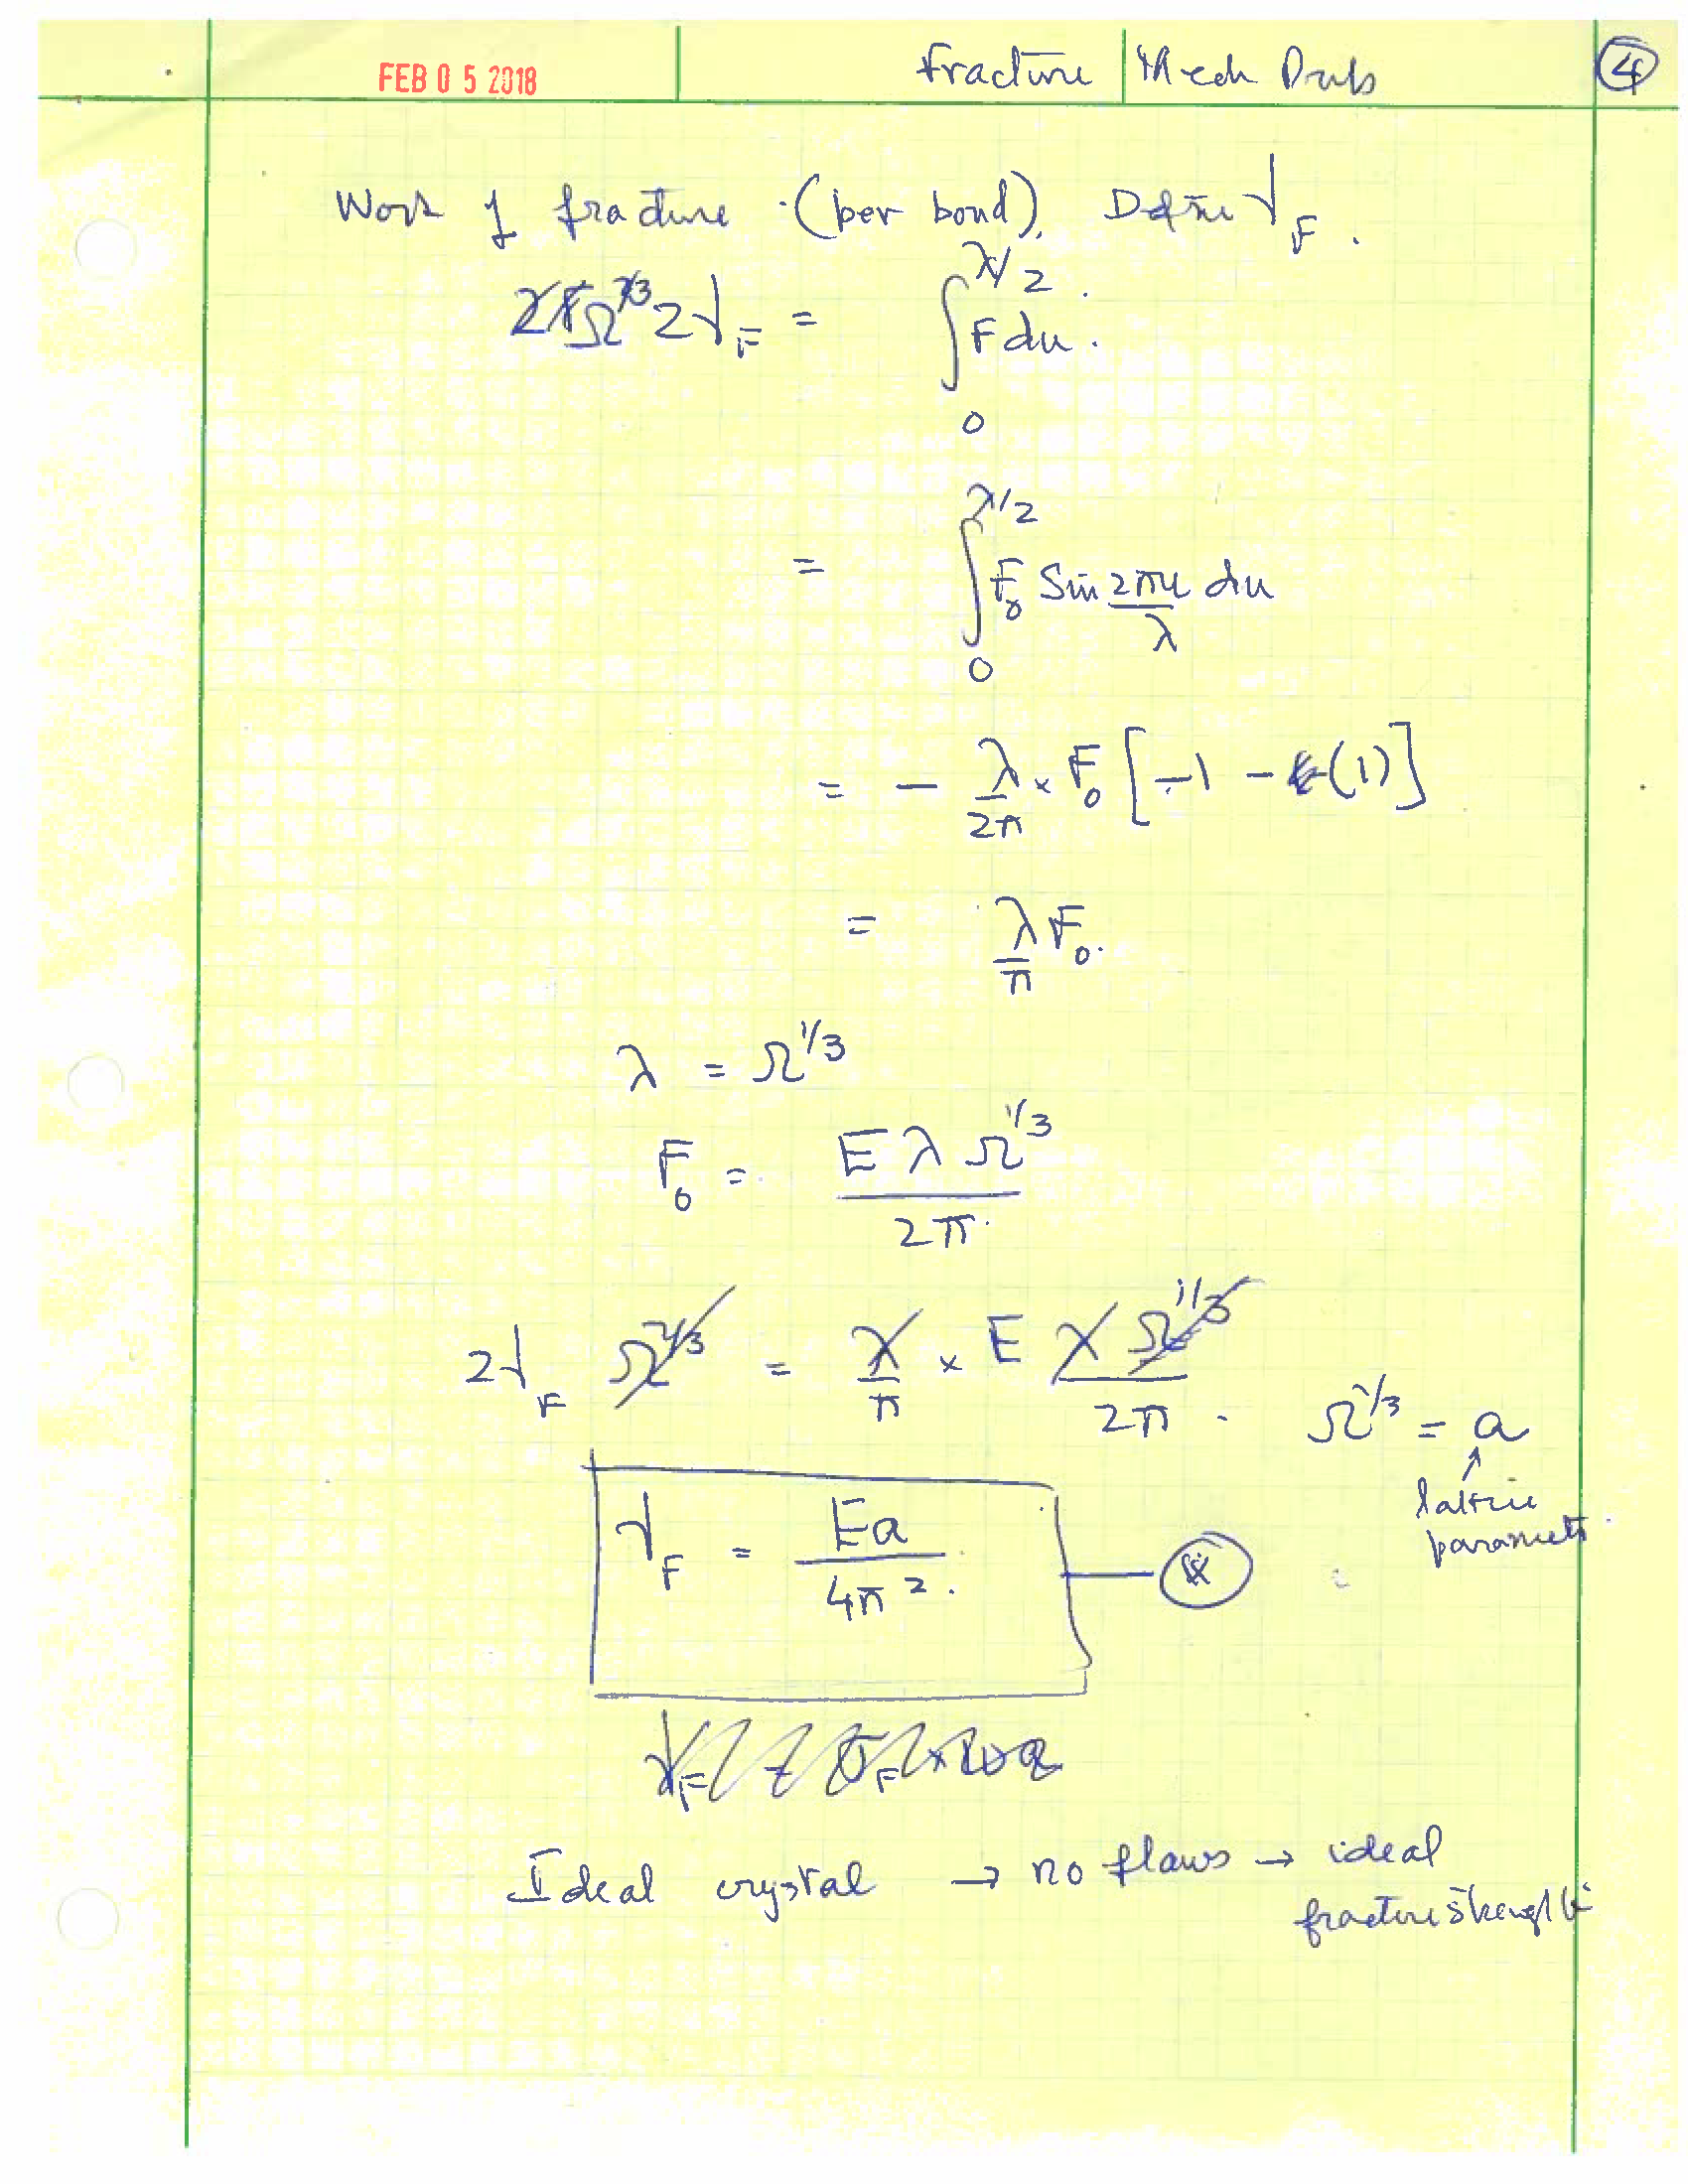 FEB 0 5 2018
Fracture Mech Props
4
Work of fracture (per bond). Define γ_F.
Ω^{2/3} 2γ_F = ∫_0^{λ/2} F du.
= ∫_0^{λ/2} F_0 Sin 2πu/λ du
= - λ/2π × F_0 [-1 - (1)]
= λ/π F_0.
λ = Ω^{1/3}
F_0 = E λ Ω^{1/3} / 2π.
2γ_F Ω^{2/3} = λ/π × E λ Ω^{1/3} / 2π.
Ω^{1/3} = a
↑
lattice
parameter
γ_F = Ea / 4π².
Ideal crystal → no flaws → ideal
fracture strength